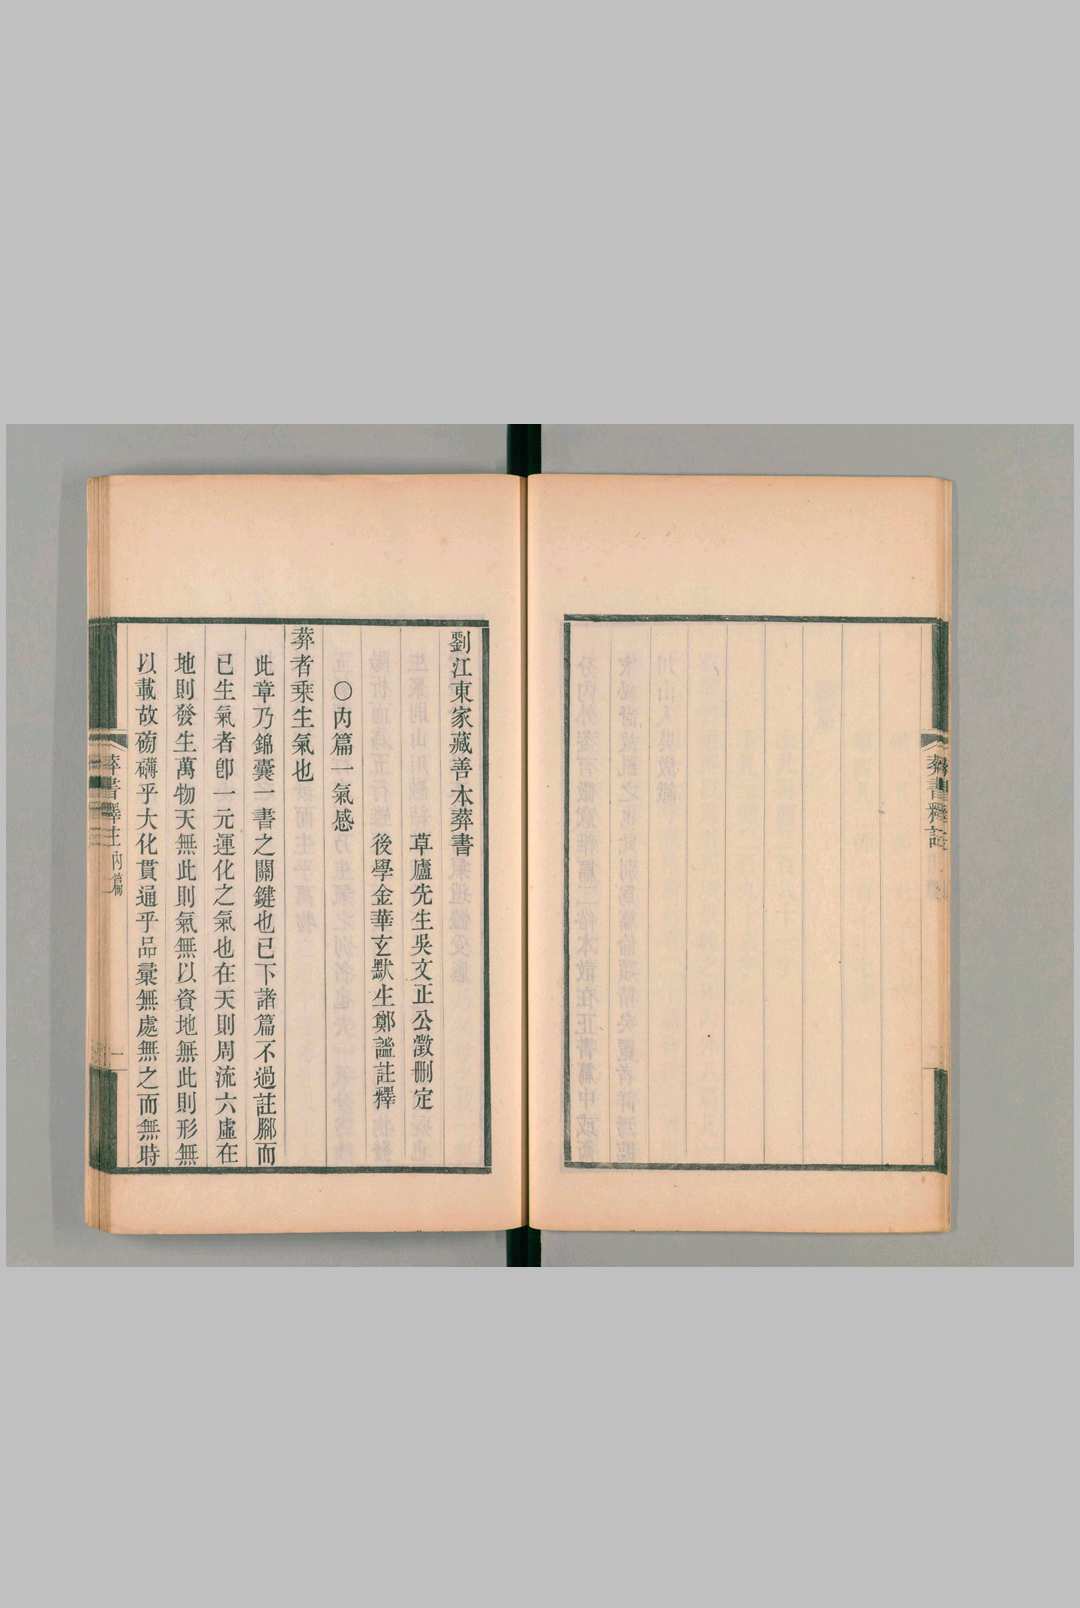 葬書釋註
劉江東家藏善本葬書
草廬先生吳文正公澂刪定
後學金華玄默生鄭謐註釋
○內篇一氣感
葬者乘生氣也
此章乃錦囊一書之關鍵也已下諸篇不過註腳而
已生氣者卽一元運化之氣也在天則周流六虛在
地則發生萬物天無此則氣無以資地無此則形無
以載故磅礴乎大化貫通乎品彙無處無之而無時
葬書釋注 內篇
一